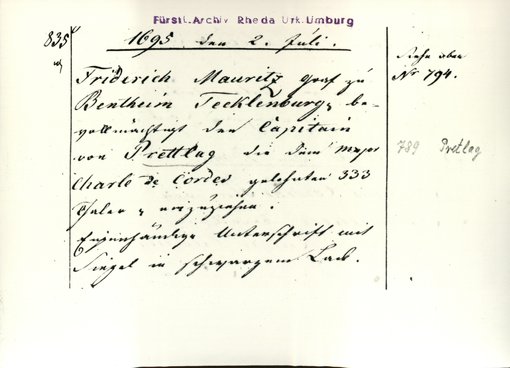 Fürstl. Archiv Rheda Urk. Limburg
835
1695 den 2. Juli.
Friderich Mauritz Graf zu
Bentheim Tecklenburg, be-
vollmächtigt den Capitain
von Prettlag die dem Major
Charle de Cordes gelehnten 333
Thaler, einzuziehen.
Eigenhändige Unterschrift mit
Siegel in schwarzem Lack.
Siehe oben
Nr 794.
789 Pretlag